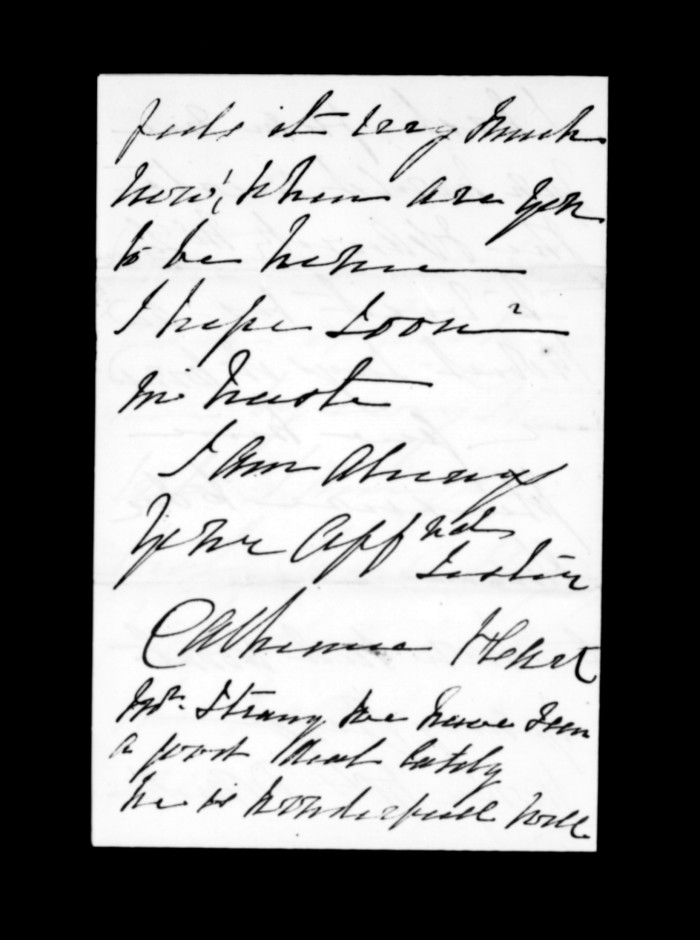 feels it very much
now, when are you
to be home
I hope soon?
in haste
I am always
Your Aff nat
Sister
Catherine Hart
Mr. Strang we have seen
a good deal lately
he is wonderfull well